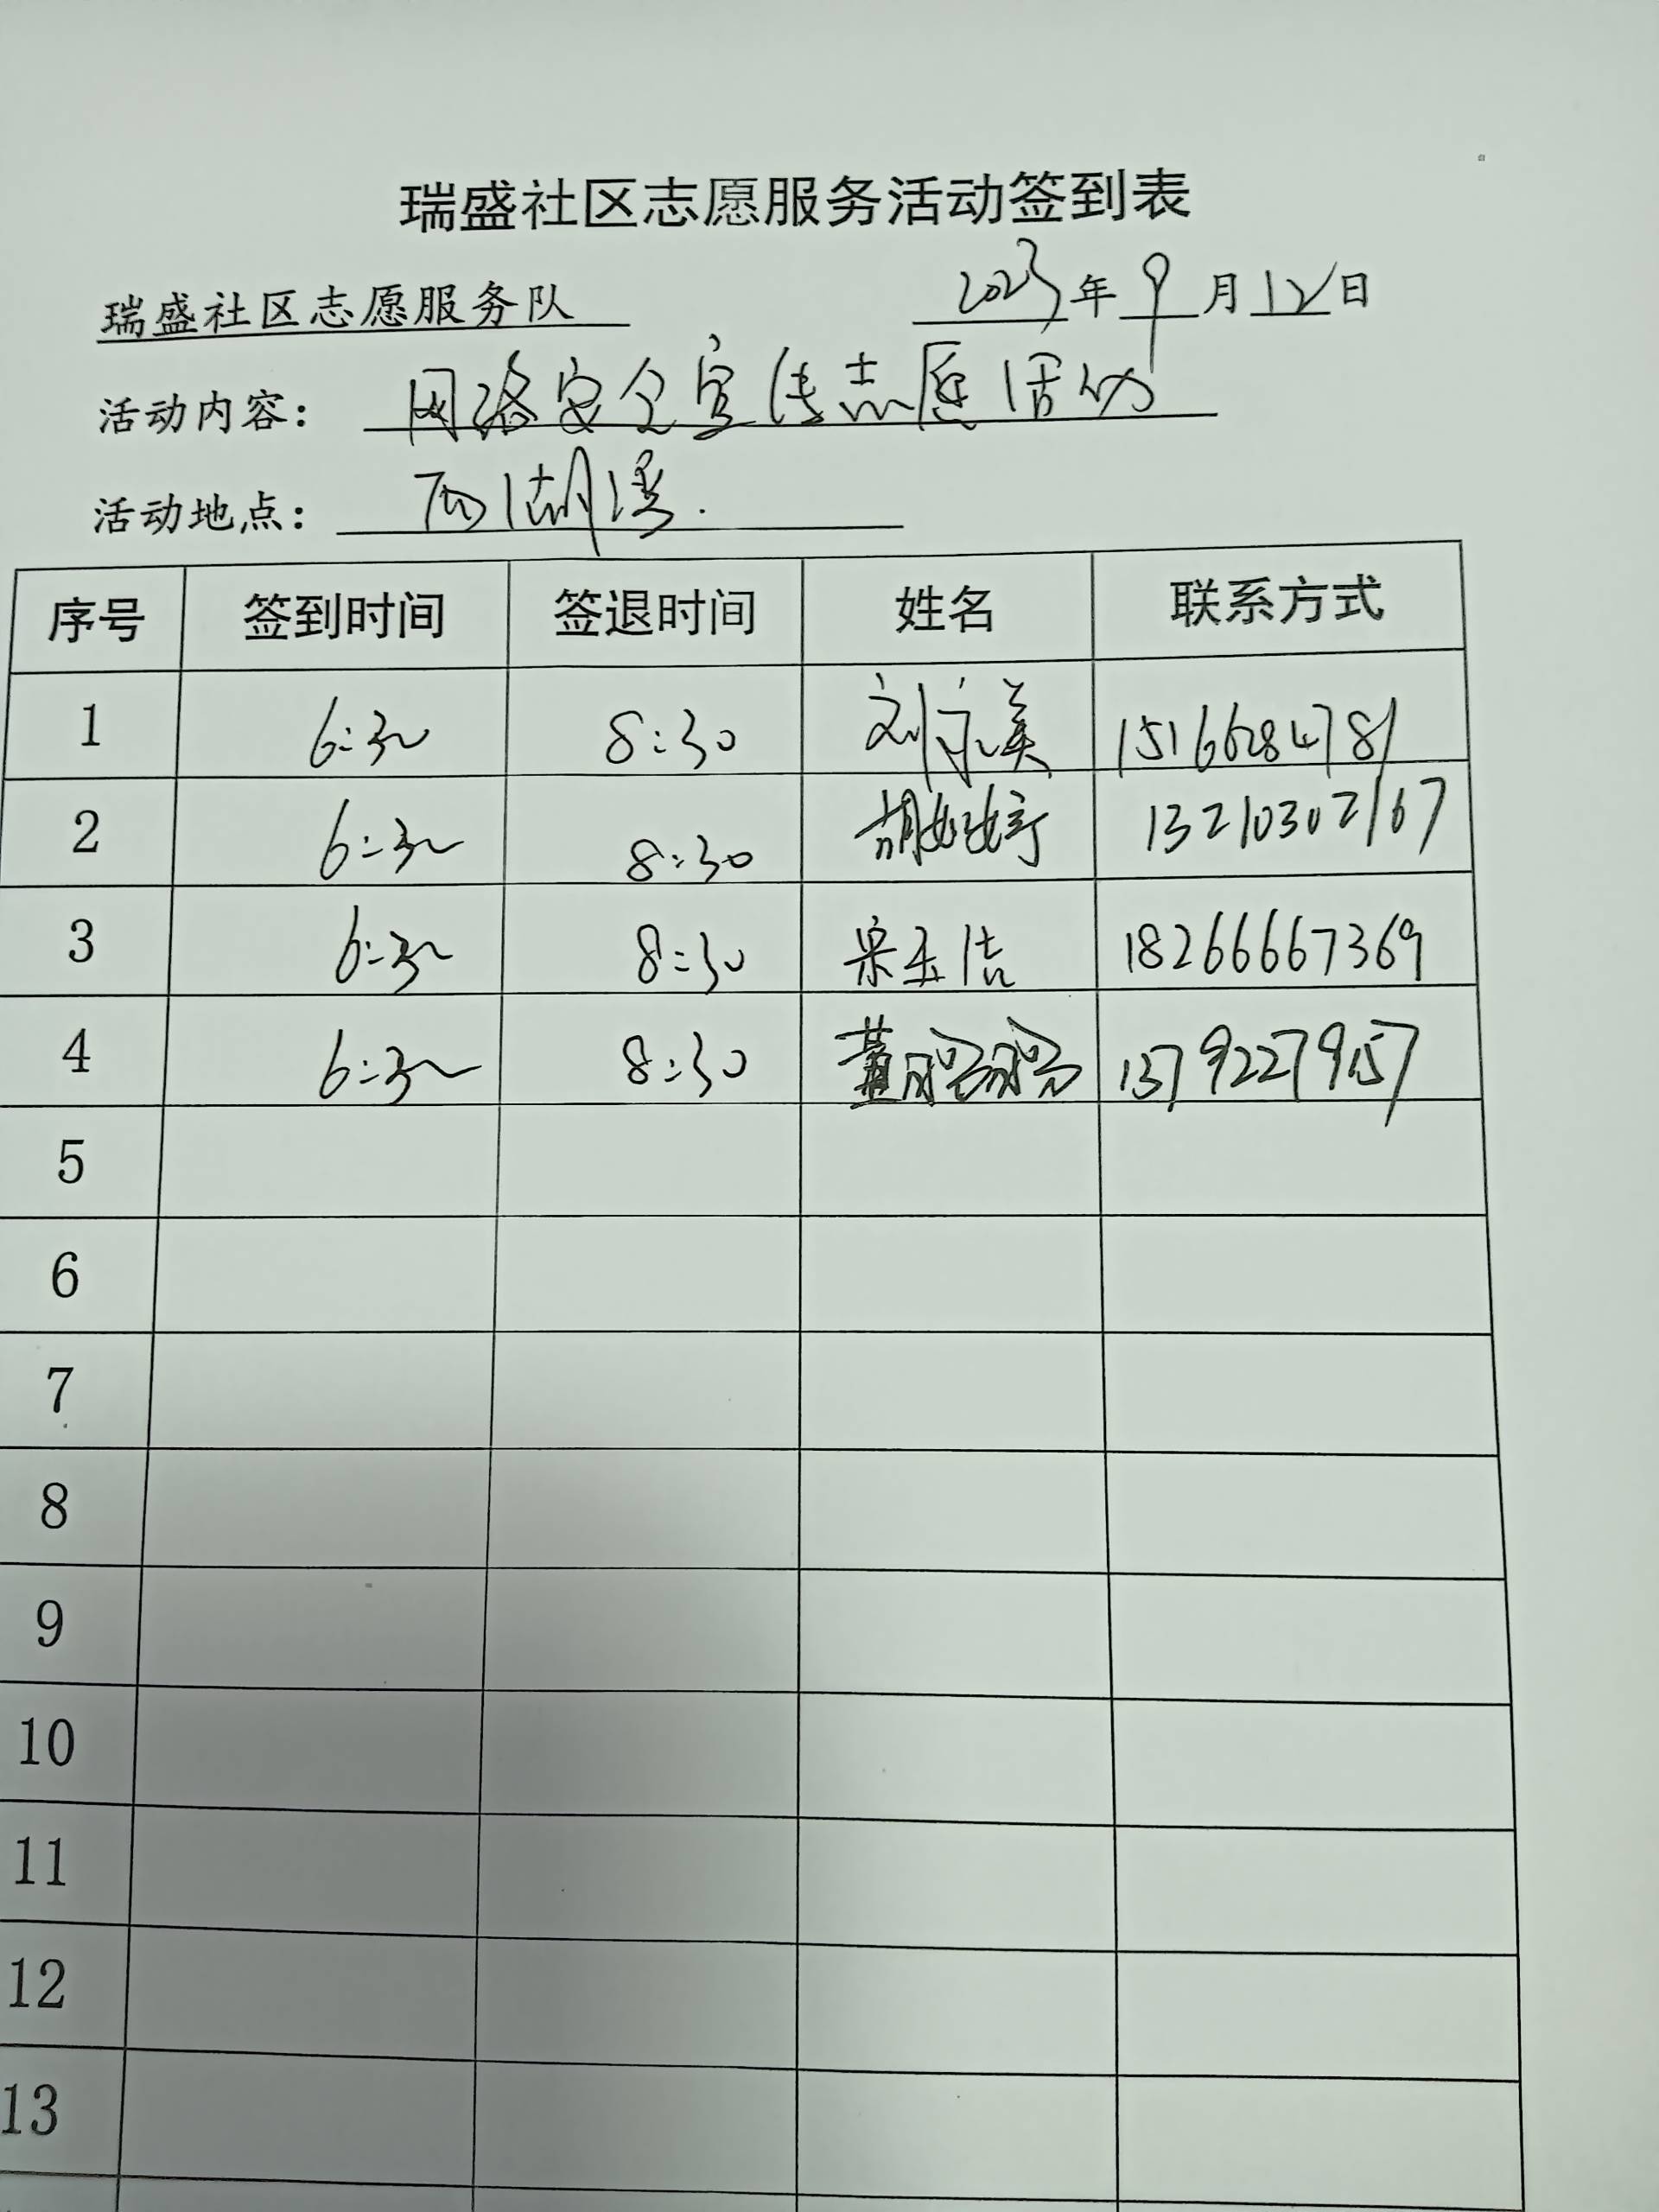 瑞盛社区志愿服务活动签到表
瑞盛社区志愿服务队 2023年9月12日
活动内容: 网络安全宣传志愿活动
活动地点: 西湖溪.
序号 签到时间 签退时间 姓名 联系方式
1 6:30 8:30 刘永美 15166284781
2 6:30 8:30 胡婷婷 13210302167
3 6:30 8:30 宋玉洁 18266667369
4 6:30 8:30 董 13792279157
5
6
7
8
9
10
11
12
13